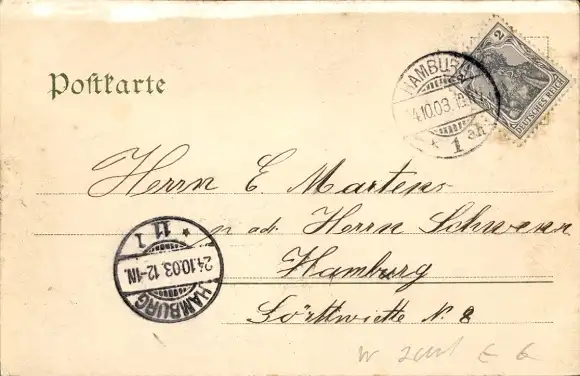 Postkarte
HAMBURG
24.10.03. 12
* 1 ah
2
DEUTSCHES REICH
Herrn E Martens
adr. Herrn Schwenn
Hamburg
N. 8
HAMBURG
24.10.03. 12-1N.
* 11 1